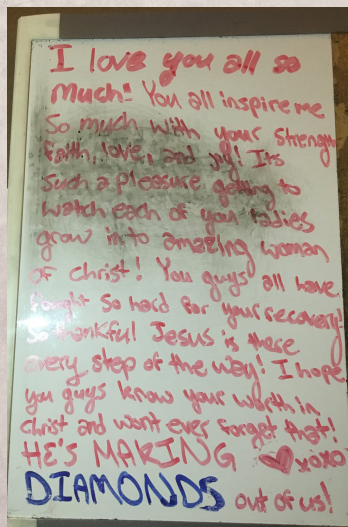 I love you all so
much! You all inspire me
So much, with your strength
faith, love, and joy! Its
such a pleasure getting to
watch each of you ladies
grow in to amazing woman
of christ! You guys all have
fought so hard for your recovery!
So thankful Jesus is there
every step of the way! I hope
you guys know your worth in
christ and won't ever forget that!
HE'S MAKING xoxo
DIAMONDS out of us!